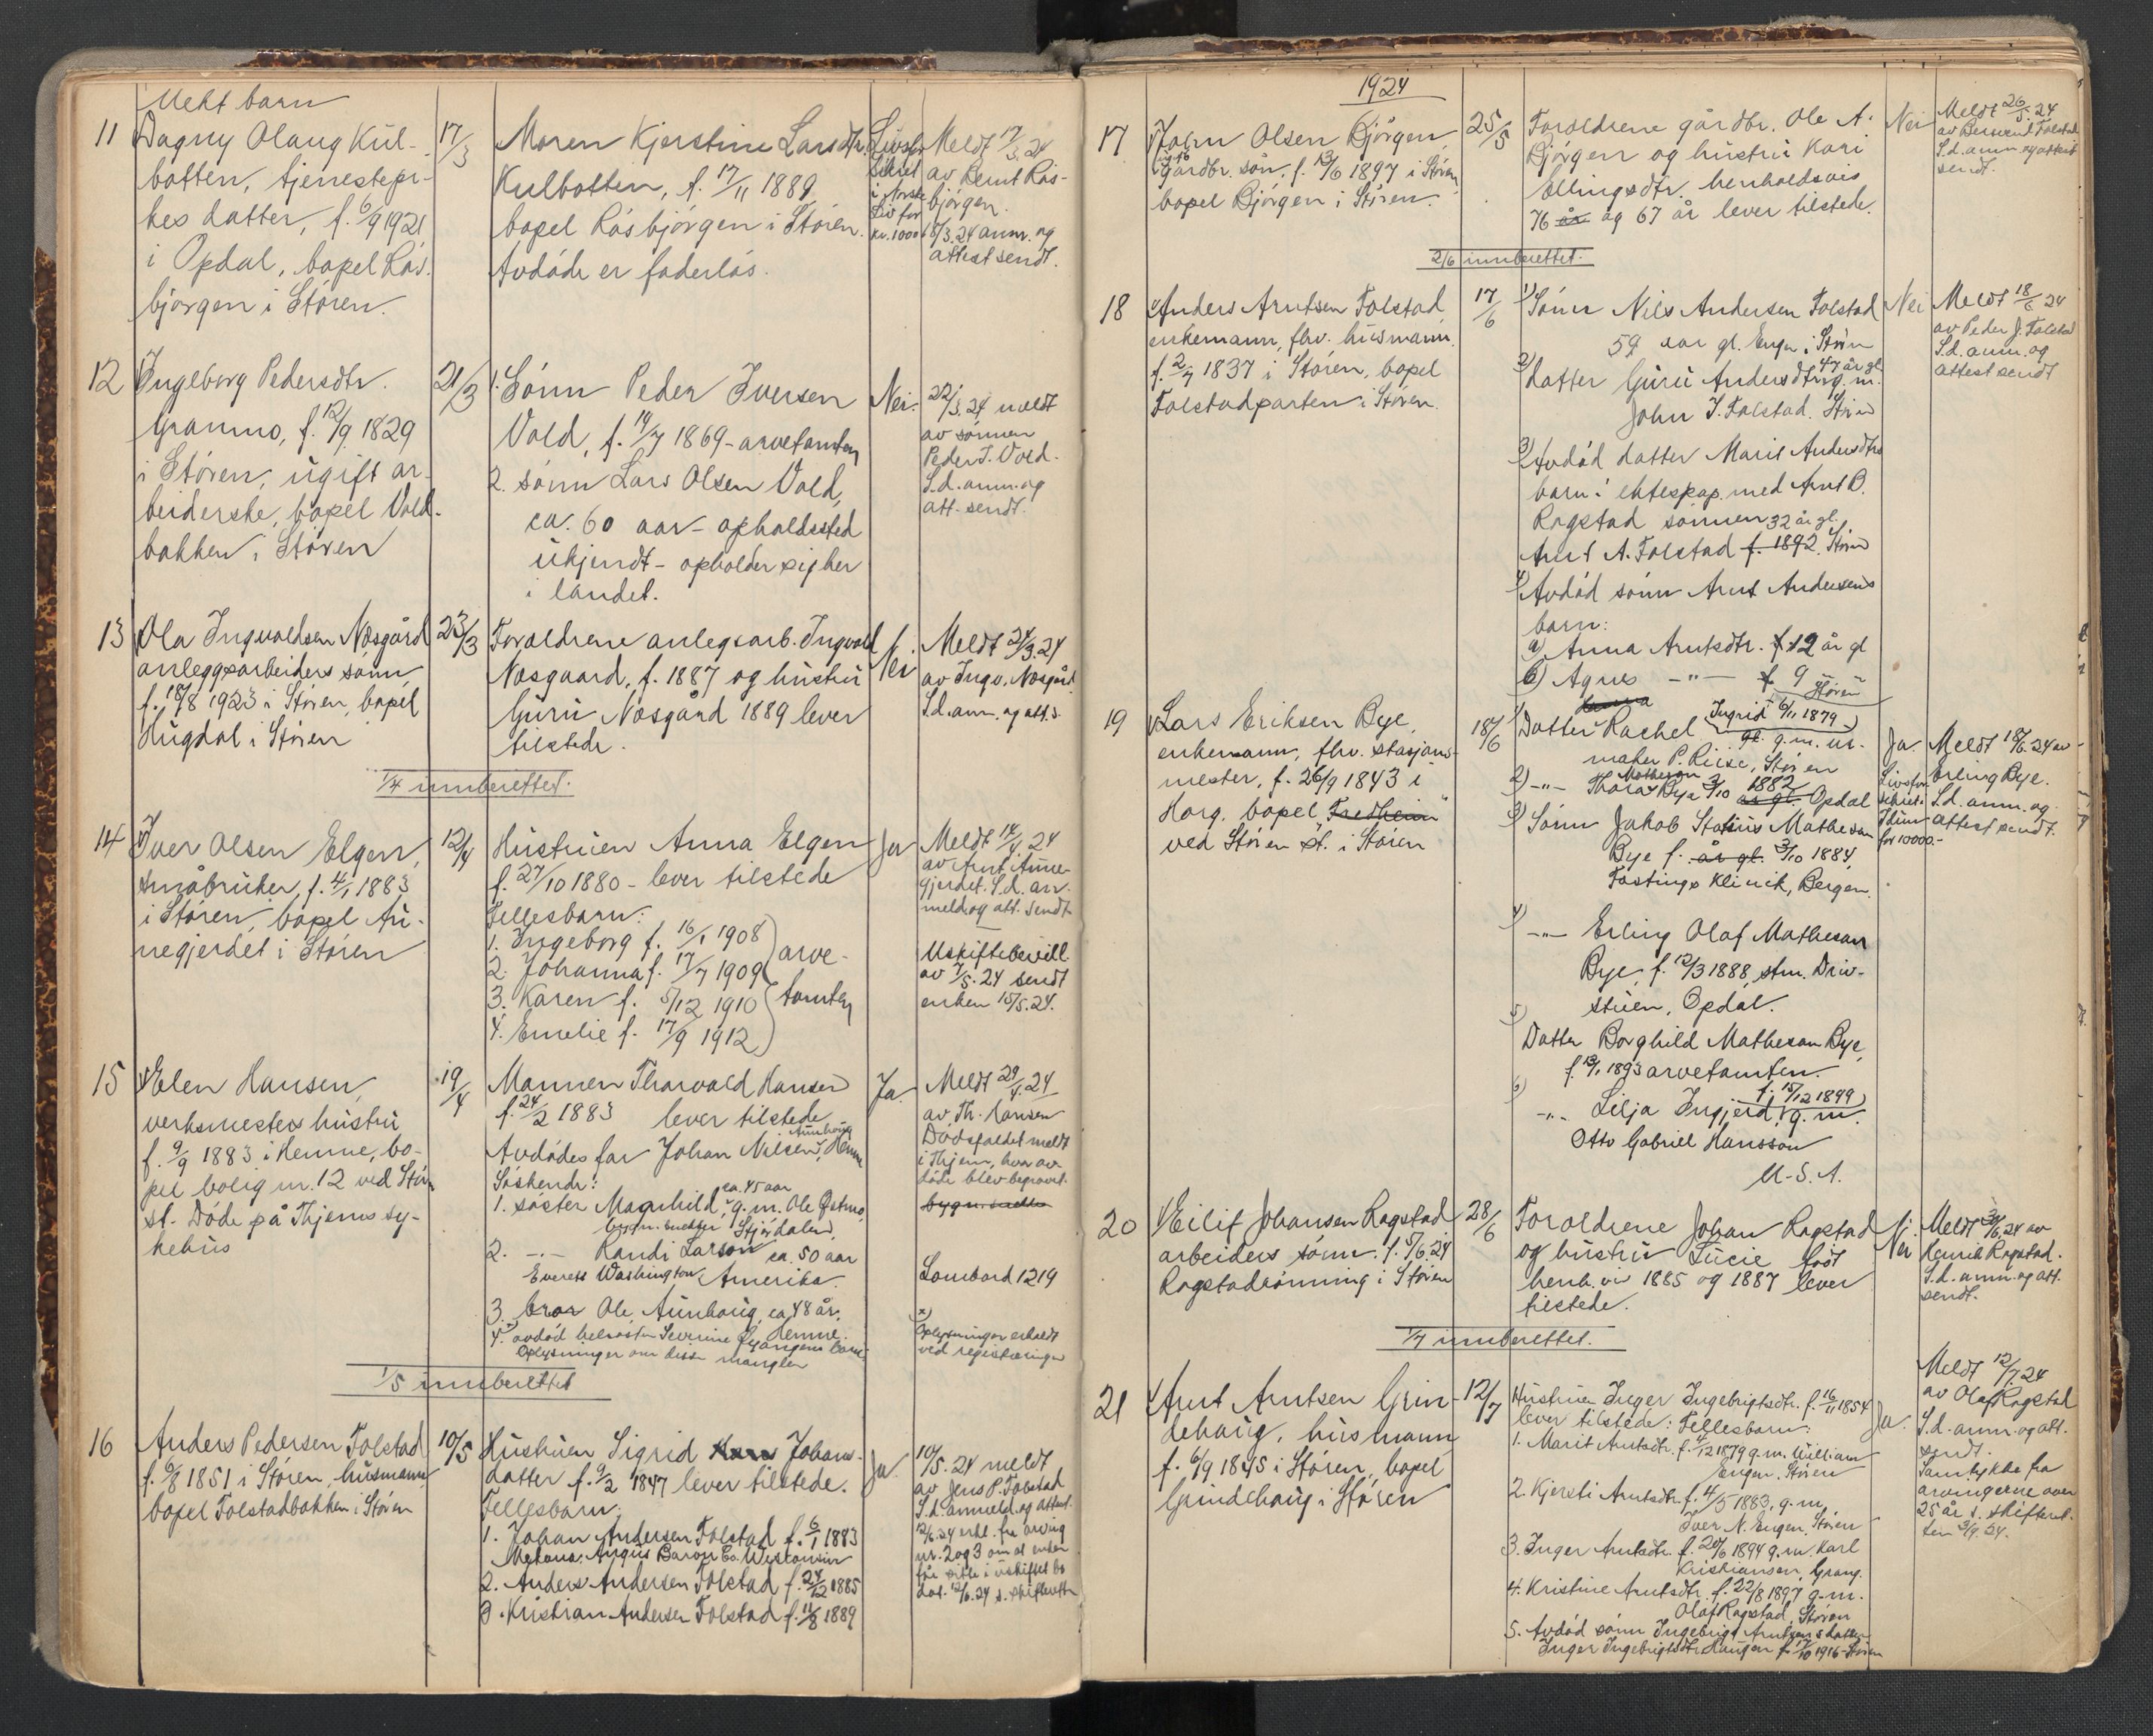 Uekt barn
11 Dagny Olaug Kul-
botten, tjenestepi-
kes datter, f. 6/9 1921
i Opdal, bopel Rös-
bjørgen i Støren.
17/3
Moren Kjerstine Larsdtr.
Kulbotten, f. 17/11 1889
bopel Rösbjörgen i Støren.
Avdöde er faderlös.
Livsfor
sikret
i norske
Liv for
kr. 1000
Meldt 17/3 24
av Bernt Rös-
bjørgen.
18/3.24 anm. og
attest sendt.
12 Ingeborg Pedersdtr.
Gramno, f. 12/9 1829
i Støren, ugift ar-
beiderske, bopel Vold-
bakken i Støren
21/3
1. Sønn Peder Iversen
Vold, f. 14/7 1869 - arvetomten
2. sønn Lars Olsen Vold,
ca. 60 aar - opholdssted
ukjendt - opholder sig her
i landet.
Nei.
22/3.24 meldt
av sønnen
Peder I. Vold.
S.d. anm. og
att. sendt.
13 Ola Ingvaldsen Næsgård
anleggsarbeiders sønn,
f. 18/8 1923 i Støren, bopel
Hugdal i Støren
23/3
Foreldrene anlegsarb. Ingvald
Næsgaard, f. 1887 og hustru
Guru Næsgård 1889 lever
tilstede.
Nei
Meldt 24/3.24
av Ingv. Næsgård
S.d. anm. og att. s.
1/4 innberettet.
14 Iver Olsen Elgen,
småbruker, f. 4/1 1883
i Støren, bopel Au-
negjerdet i Støren
12/4
Hustruen Anna Elgen
f. 27/10 1880 - lever tilstede
Fellesbarn:
1. Ingeborg f. 16/1 1908
2. Johanna f. 17/7 1909
3. Karen f. 5/12 1910
4. Emelie f. 17/9 1912
arve-
tomten
Ja
Meldt 14/4 24
av Arnt Aune-
gjerdet. S.d. an-
meld. og att. sendt
Uskiftebevill.
av 7/5.24 sendt
enken 15/5.24.
15 Elen Hansen,
verksmesters hustru
f. 9/9 1883 i Hemne, bo-
pel bolig nr. 12 ved Støren
st. Döde på Thjems sy-
kehus
19/4
Mannen Thorvald Hansen
f. 24/2 1883 lever tilstede
Avdödes far Johan Nilsen Aunhaug, Hemne
Söskende:
1. söster Magnhild, ca. 45 aar g.m. Ole Östmo,
bygn. snekker Stjördalen,
2. -"- Randi Larson ca. 50 aar
Everett Washington Amerika.
3. bror Ole Aunhaug, ca 48 år,
Hemne.
4. x) avdöd helsöster Severine Öyangens barn.
Oplysninger om disse mangler
Ja.
Meldt 29/4.24
av Th. Hansen
Dödsfaldet meldt
i Thjem, hvor av-
döde blev begravet.
bygn. snekker
Lombard 1219
x)
Oplysninger erholdt
ved registreringen
1/5 innberettet
16 Anders Pedersen Folstad
f. 6/8 1851 i Støren, husmann,
bopel Folstadbakken i Støren
10/5
Hustruen Sigrid Johans-
datter f. 9/2 1847 lever tilstede.
Fellesbarn:
1. Johan Andersen Folstad f. 6/1 1883
Angus Baron Co. Wisconsin
2. Anders Andersen Folstad f. 24/12 1885
3. Kristian Andersen Folstad f. 11/8 1889
Ja.
10/5.24 meldt
av Jens P. Folstad
S.d. anmeld. og attest.
12/6.24 erkl. fra arving
nr. 2 og 3 om at enken
får sitte i uskiftet bo
dat. 12/6.24 s. skifteretten
1924
17 John Olsen Bjørgen,
ugift
gårdbr. sön, f. 13/6 1897 i Støren
bopel Bjørgen i Støren.
25/5
Foreldrene gårdbr. Ole A.
Bjørgen og hustru Kari
Ellingsdtr. henholdsvis
76 år og 67 år lever tilstede.
Nei
Meldt 26/5.24
av Folstad
S.d. anm. og attest
sendt.
2/6 innberettet.
18 Anders Arntsen Folstad
enkemann, fhv. husmann
f. 2/7 1837 i Støren, bopel
Folstadparten i Støren.
17/6
1) Sönn Nils Andersen Folstad
59 aar gl. Engen i Støren
2) datter Guru Andersdtr. 47 år gl. g.m.
John J. Folstad. Støren
3) Avdöd datter Marit Andersdtrs
barn i ekteskap med Arnt O.
Rogstad sønnen 32 år gl.
Arnt A. Folstad f. 1892. Støren
4) Avdöd sønn Arnt Andersens
barn:
a) Anna Arntsdtr. f. 12 år gl
b) Agnes -"- f 9 -"-
Støren
Nei
Meldt 18/6 24
av Peder J. Folstad
S.d. anm. og
attest sendt
19 Lars Eriksen Bye,
enkemann, fhv. stasjons-
mester, f. 26/9 1843 i
Horg. bopel "Fredheim"
ved Støren st. i Støren
18/6
1) Datter Rachel Ingrid 6/11 1879
gl. g.m. ur-
maker P. Riise, Støren
2) -"- Thora Matheson Bye 3/10 1882 år gl. Opdal
3) Sönn Jakob Statius Matheson
Bye f. år gl. 3/10 1884,
Fastings Klinik, Bergen.
4) -"- Erling Olaf Matheson
Bye, f. 12/3 1888, stm. Driv-
stuen, Opdal.
5) Datter Borghild Matheson Bye,
f. 13/1 1893 arvetomten.
6) -"- Lilja Ingjerd, f. 15/12 1899, g.m.
Otto Gabriel Hansson
U.S.A.
Ja
Livsfor
sikret i
Idun
for 10000.-
Meldt 18/6.24 av
Erling Bye.
S.d. anm. og
attest sendt.
20 Eilif Johansen Rogstad
arbeiders sønn. f. 5/6.24
Rogstadrönning i Støren
28/6
Foreldrene Johan Rogstad
og hustru Lucie födt
henh.vis 1885 og 1887 lever
tilstede.
Nei
Meldt 30/6.24 av
Henrik Rogstad.
S.d. anm. og att.
sendt.
1/7 innberettet.
21 Arnt Arntsen Grin-
dehaug, husmann
f. 6/9 1845 i Støren, bopel
Grindehaug i Støren
12/7
Hustruen Inger Ingebrigtsdtr. f. 16/11 1854
lever tilstede: Fellesbarn:
1. Marit Arntsdtr. f. 4/12 1879 g.m. William
Engen. Støren
2. Kjersti Arntsdtr. f. 4/5 1883, g.m.
Iver N. Engen, Støren
3. Inger Arntsdtr. f. 20/6 1894 g.m. Karl
Kristiansen, Grong.
4. Kristine Arntsdtr. f. 22/8 1897 g.m.
Olaf Rogstad, Støren
5. Avdöd sønn Ingebrigt Arntsens datter
Inger Ingebrigtsdtr. Haugen f. 17/10 1916 - Støren
Ja.
Meldt 12/7.24
av Olaf Rogstad
S.d. anm. og att.
sendt.
Samtykke fra
arvingerne over
25 år s. skifteret.
den 3/9.24.